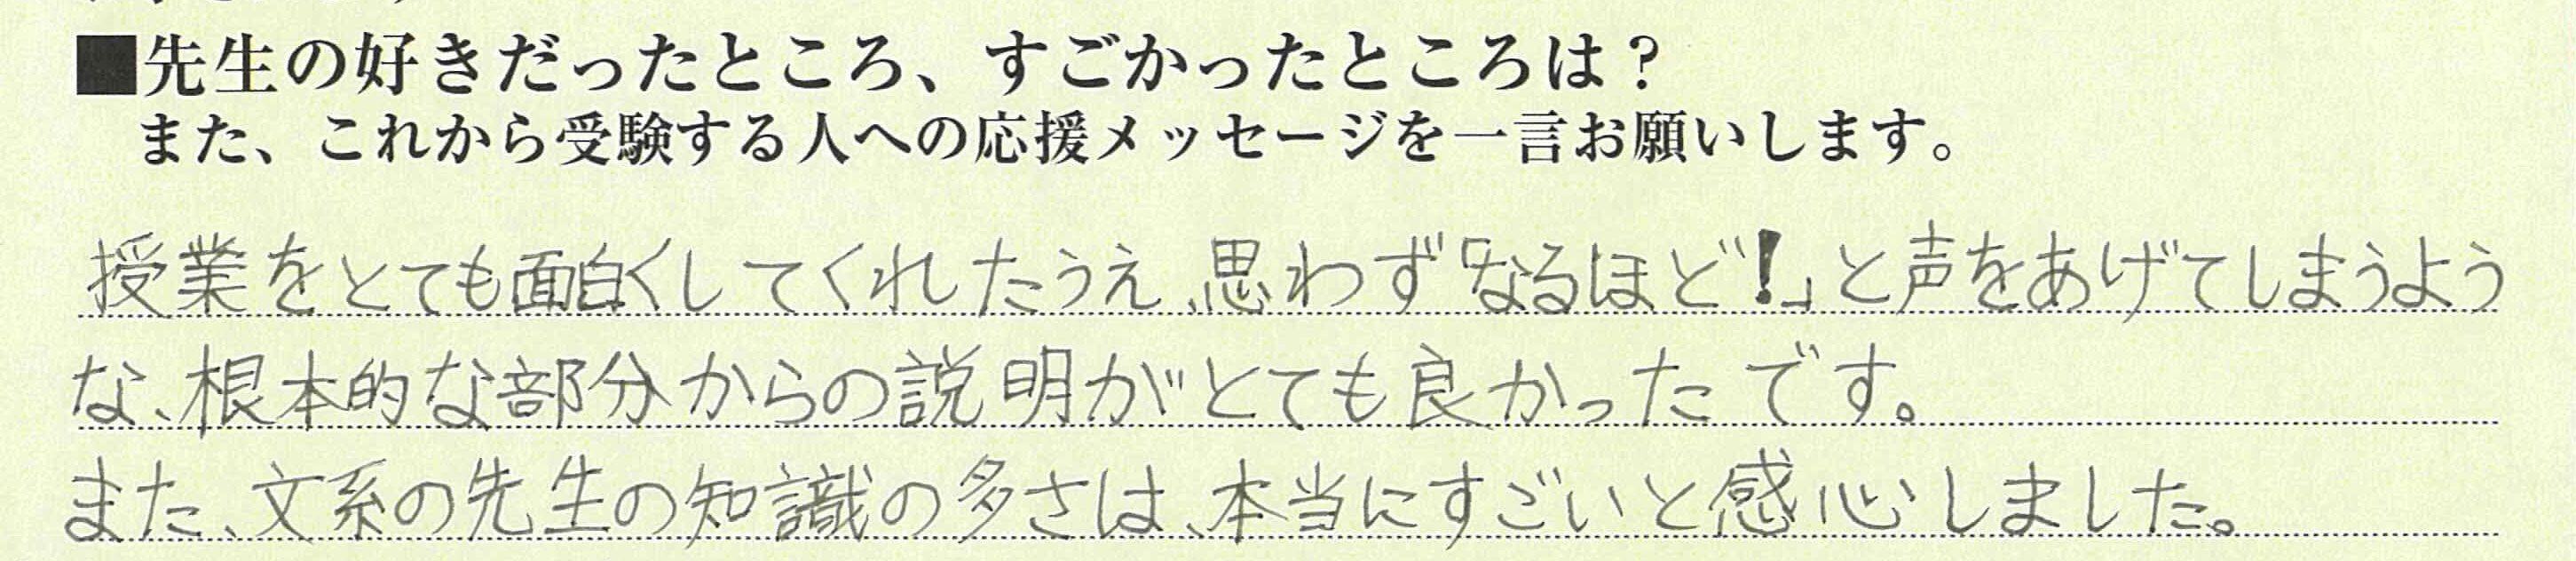 ■先生の好きだったところ、すごかったところは？
また、これから受験する人への応援メッセージを一言お願いします。
授業をとても面白くしてくれたうえ、思わず「なるほど!」と声をあげてしまうよう
な、根本的な部分からの説明がとても良かったです。
また、文系の先生の知識の多さは、本当にすごいと感心しました。